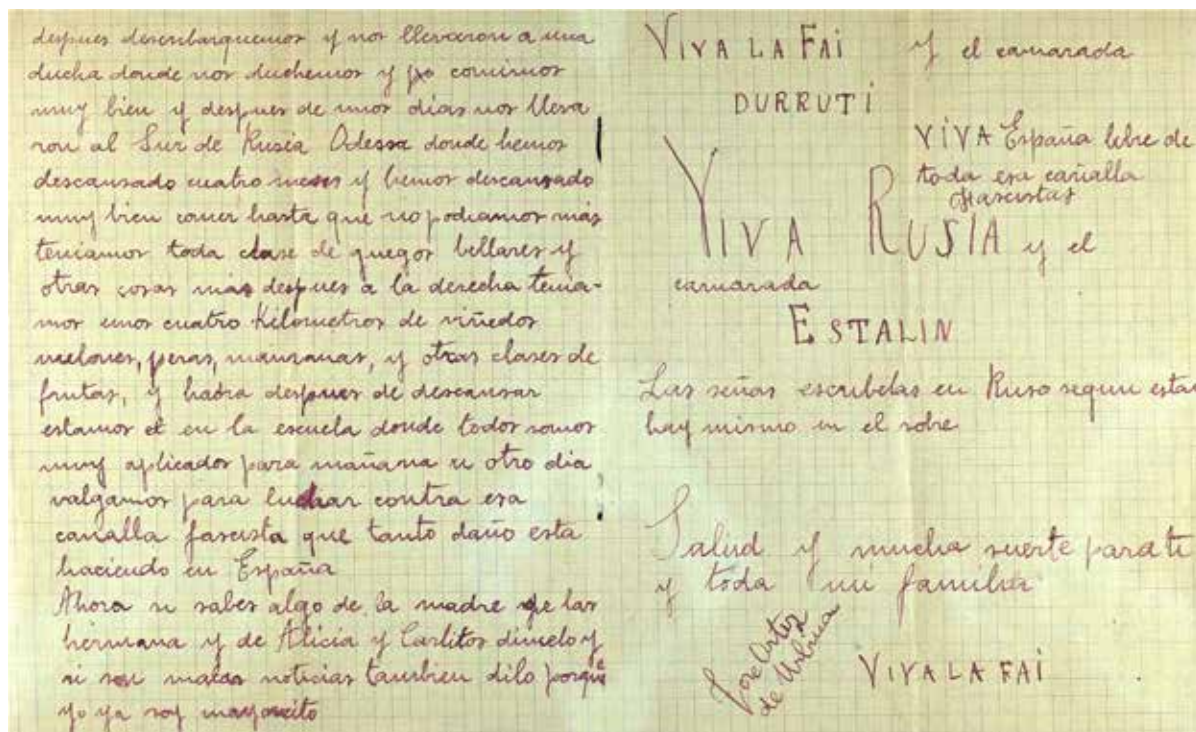 despues desenbarquemos y nos llevaron a una
ducha donde nos duchemos y comimos
muy bien y despues de unos días nos lleva
ron al Sur de Rusia Odessa donde hemos
descansado cuatro meses y hemos descansado
muy bien comer hasta que no podiamos más
teniamos toda clase de quegos bellares y
otras cosas más despues a la derecha tenia-
mos unos cuatro Kilometros de viñedos
melones, peras, manzanas, y otras clases de
frutas, y haora despues de descansar
estamos en la escuela donde todos somos
muy aplicados para mañana u otro dia
valgamos para luchar contra esa
canalla fascista que tanto daño esta
haciendo en España
Ahora si sabes algo de la madre de las
hermana y de Alicia y Carlitos dimelo y
si son malas noticias tambien dilo porque
yo ya soy mayorcito
VIVA LA FAI y el camarada
DURRUTI
VIVA España libre de
toda esa cañalla
fascistas
VIVA RUSIA y el
camarada
ESTALIN
Las señas escribelas en Ruso segun estan
hay mismo en el sobre
Salud y mucha suerte para ti
y toda mi familia
Jose Ortiz
de Urbina
VIVA LA FAI